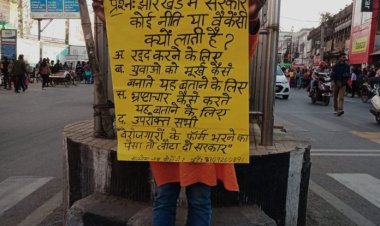 प्रश्न: झारखंड में सरकार
कोई नीति या वैकेंसी
क्यों लाती है ?
अ. रद्द करने के लिए
ब. युवाओं को मूर्ख कैसे
बनाते यह बताने के लिए
स. भ्रष्टाचार कैसे करते
यह बताने के लिए
द. उपरोक्त सभी
"बेरोजगारों के फॉर्म भरने का
पैसा तो लौटा दो सरकार"